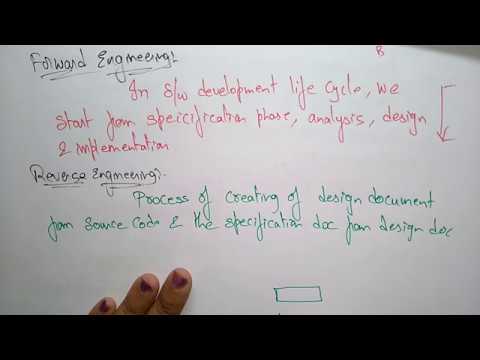 B
Forward Engineering:
In S/w development life cycle, we
start from speicification phase, analysis, design
& implementation
Reverse Engineering:-
Process of creating of design document
from source code & the specification doc from design doc